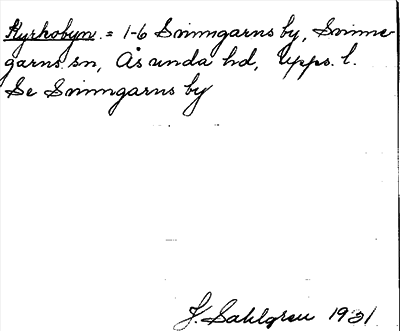 Kyrkobyn. = 1-6 Simmgarns by, Simme-
garns sn, Åsunda hd, Upps. l.
Se Simmgarns by
J. Sahlgren 1931